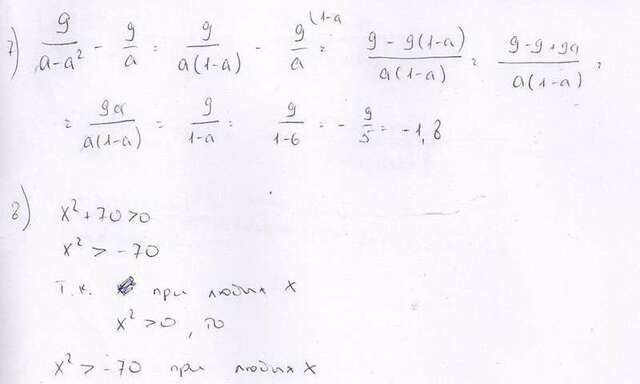 7) 9/(a-a²) - 9/a = 9/(a(1-a)) - 9/a (1-a = (9-9(1-a))/(a(1-a)) = (9-9+9a)/(a(1-a)) =
= 9a/(a(1-a)) = 9/(1-a) = 9/(1-6) = -9/5 = -1,8
8) x²+70>0
x²>-70
т.к. при любых x
x²>0, то
x²>-70 при любых x